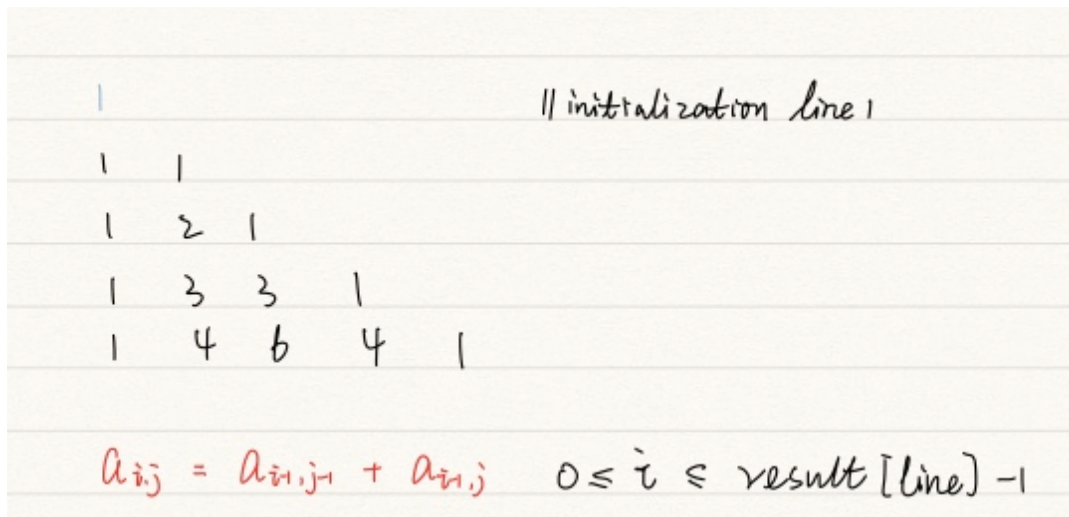 1 // initialization line 1
1 1
1 2 1
1 3 3 1
1 4 6 4 1
a_{i,j} = a_{i-1,j-1} + a_{i-1,j} 0 ≤ i ≤ result [line] -1